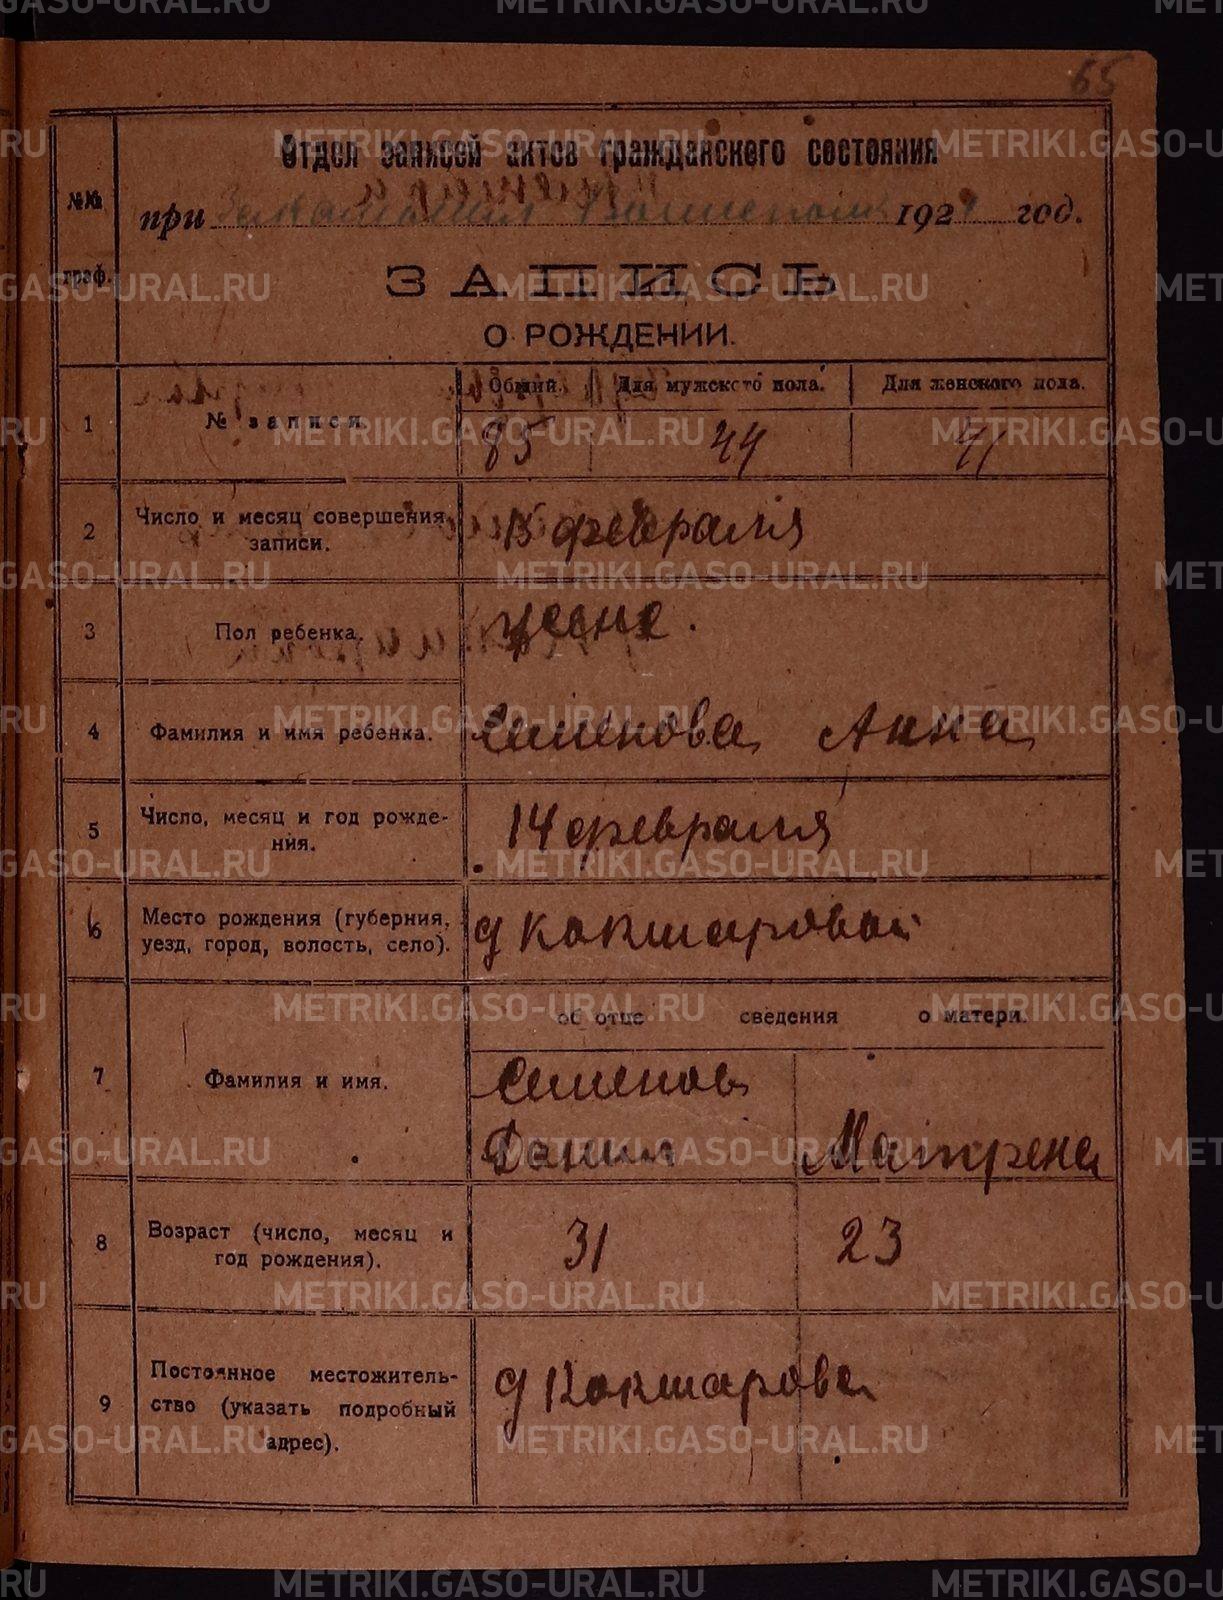 65
Отдел записей актов гражданского состояния
№№ граф.
при 192 год.
ЗАПИСЬ
О РОЖДЕНИИ.
Общий. Для мужского пола. Для женского пола.
1 № записи 85 44 41
2 Число и месяц совершения записи. 15 февраля
3 Пол ребенка. женс.
4 Фамилия и имя ребенка. Семенова Анна
5 Число, месяц и год рождения. 14 февраля
6 Место рождения (губерния, уезд, город, волость, село). д Кокшаровой
об отце сведения о матери.
7 Фамилия и имя. Семенов
Данил Матрена
8 Возраст (число, месяц и год рождения). 31 23
9 Постоянное местожительство (указать подробный адрес). д Кокшарова
METRIKI.GASO-URAL.RU